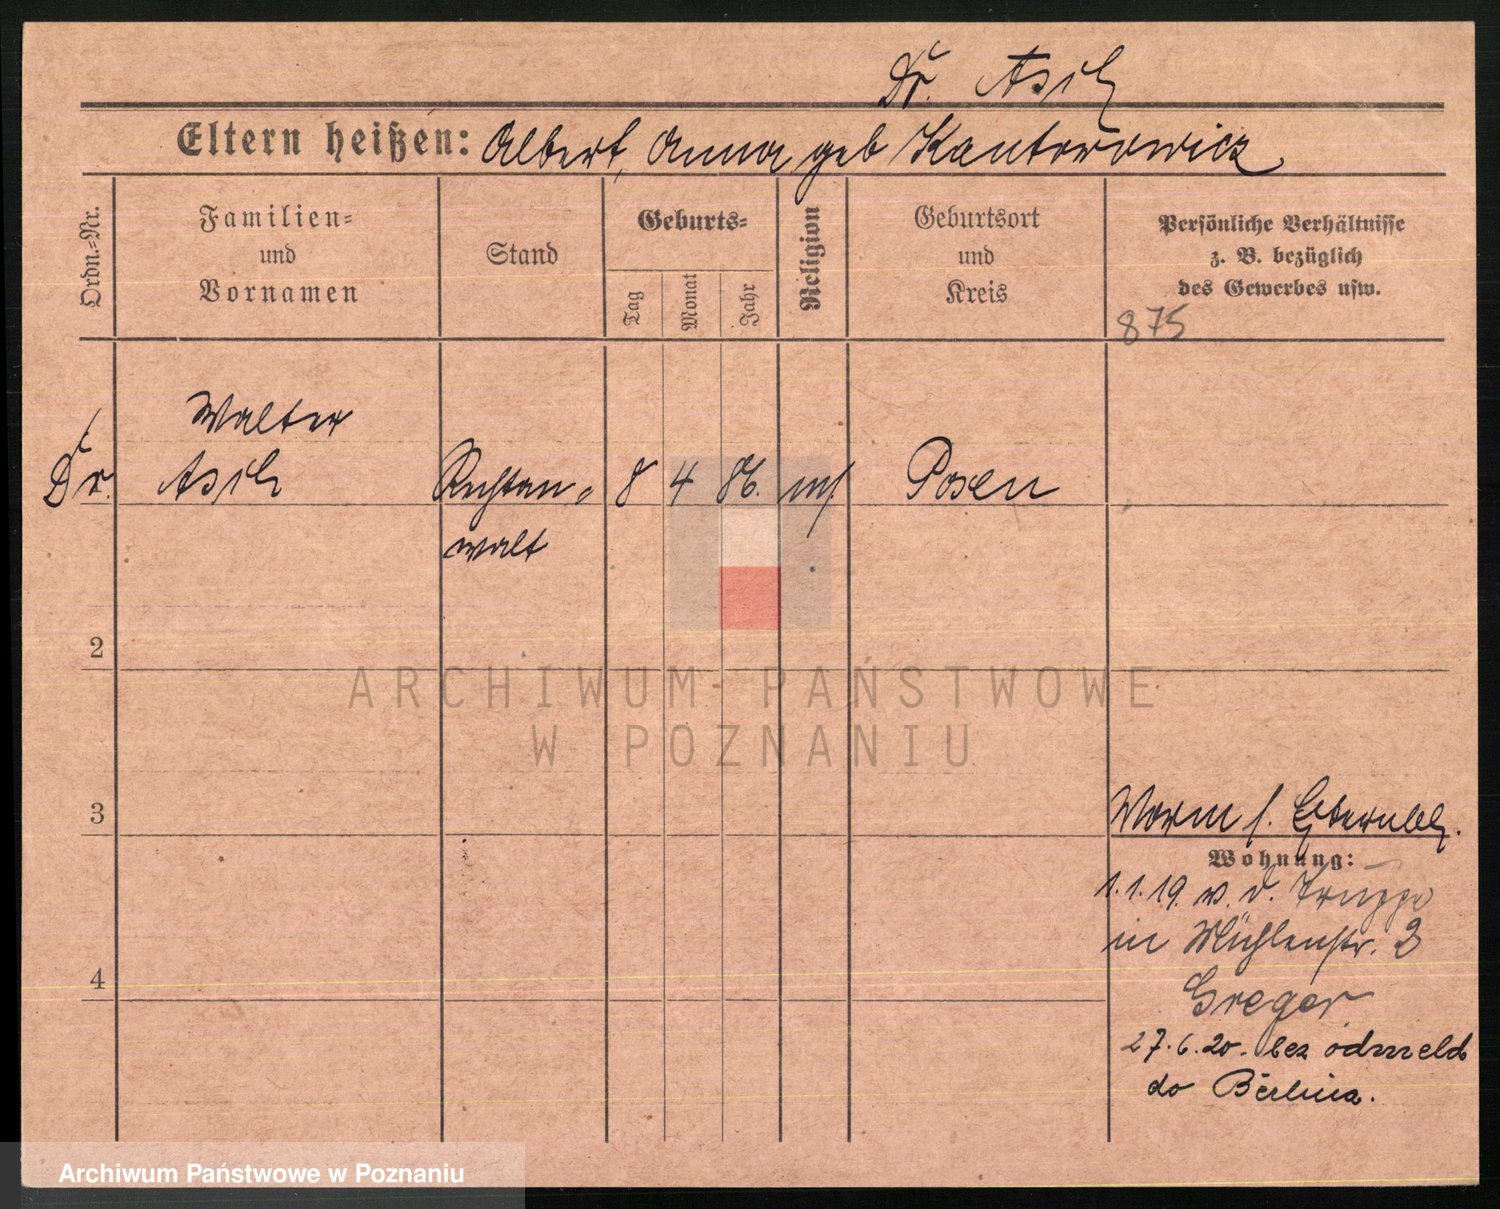 Dr. Asch
Eltern heißen: Albert, Anna geb Kantorowicz
Ordn.=Nr.
Familien=
und
Vornamen
Stand
Geburts=
Tag
Monat
Jahr
Religion
Geburtsort
und
Kreis
Persönliche Verhältnisse
z. B. bezüglich
des Gewerbes usw.
875
Walter
Dr. Asch
Rechtsan=
8 4 86.
Posen
walt
2
ARCHIWUM PAŃSTWOWE
W POZNANIU
3
Wohnung:
1.1.19. v. d. Truppe
in Mühlenstr. 3
4
Greger
27.6.20. bez odmeld
do Berlina.
Archiwum Państwowe w Poznaniu